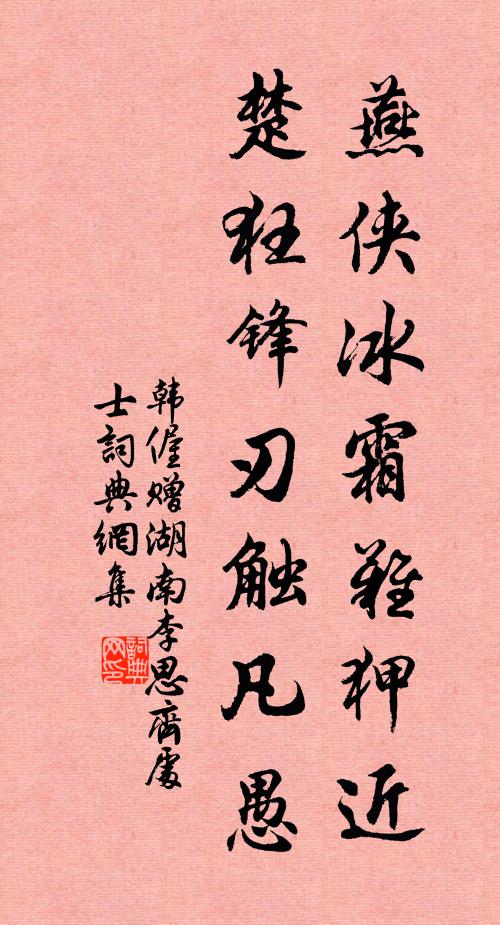 燕侠冰霜难狎近
楚狂锋刃触凡愚
韩偓赠湖南李思齐处
士詞典網集
詞典网印